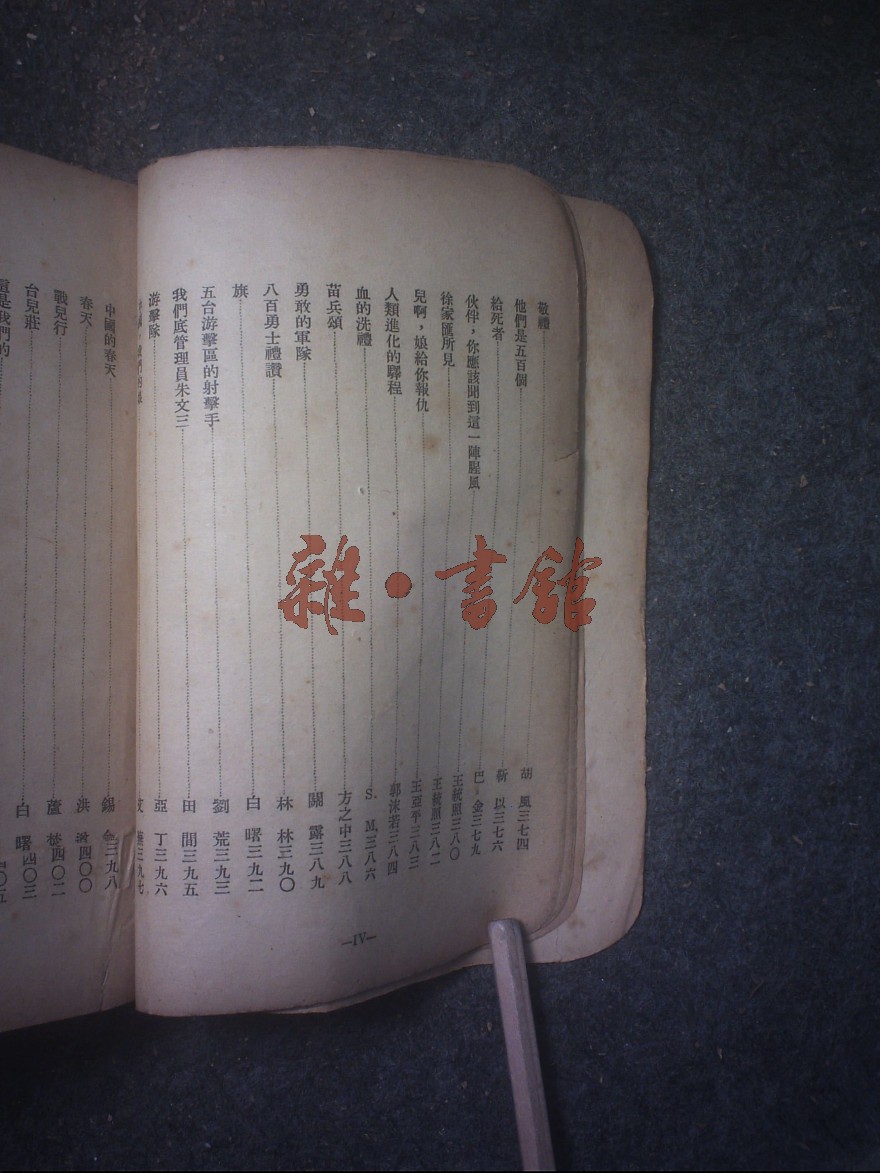 敬禮 胡風 三七四
他們是五百個 靳以 三七六
給死者 巴金 三七九
伙伴，你應該聞到這一陣腥風 王統照 三八〇
徐家匯所見 王統照 三八二
兒啊，娘給你報仇 王亞平 三八三
人類進化的驛程 郭沫若 三八四
血的洗禮 S. M. 三八六
苗兵頌 方之中 三八八
勇敢的軍隊 關露 三八九
八百勇士禮讚 林林 三九〇
旗 白曙 三九二
五台游擊區的射擊手 劉荒 三九三
我們底管理員朱文三 田間 三九五
游擊隊 亞丁 三九六
三九七
—IV—
中國的春天 錫金 三九八
春天 洪 四〇〇
戰兒行 蘆 四〇二
台兒莊 白曙 四〇三
還是我們的
雜·書館